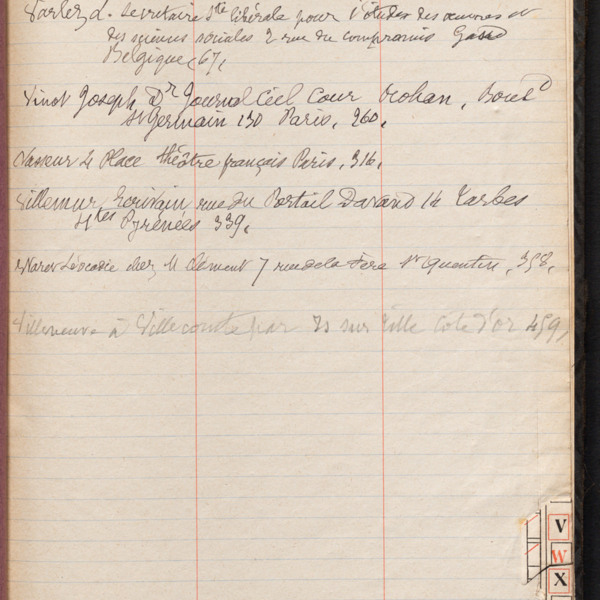 Varlez L. Secrétaire Sté libérale pour l'étude des œuvres et
des sciences sociales 2 rue du compromis Gand
Belgique, 67,
Vinot Joseph Dr Journal Ciel Cour Rohan, Boul d
St Germain 130 Paris, 260,
Vasseur 4 Place théâtre français Paris, 316,
Villemur, Ecrivain rue du Portail Davant 14 Tarbes
Htes Pyrénées 339,
Léocadie chez M Clément 7 rue de la Fère St Quentin, 358,
Villeneuve à Villecomte par Is sur Tille Cote d'or 459,
V
W
X